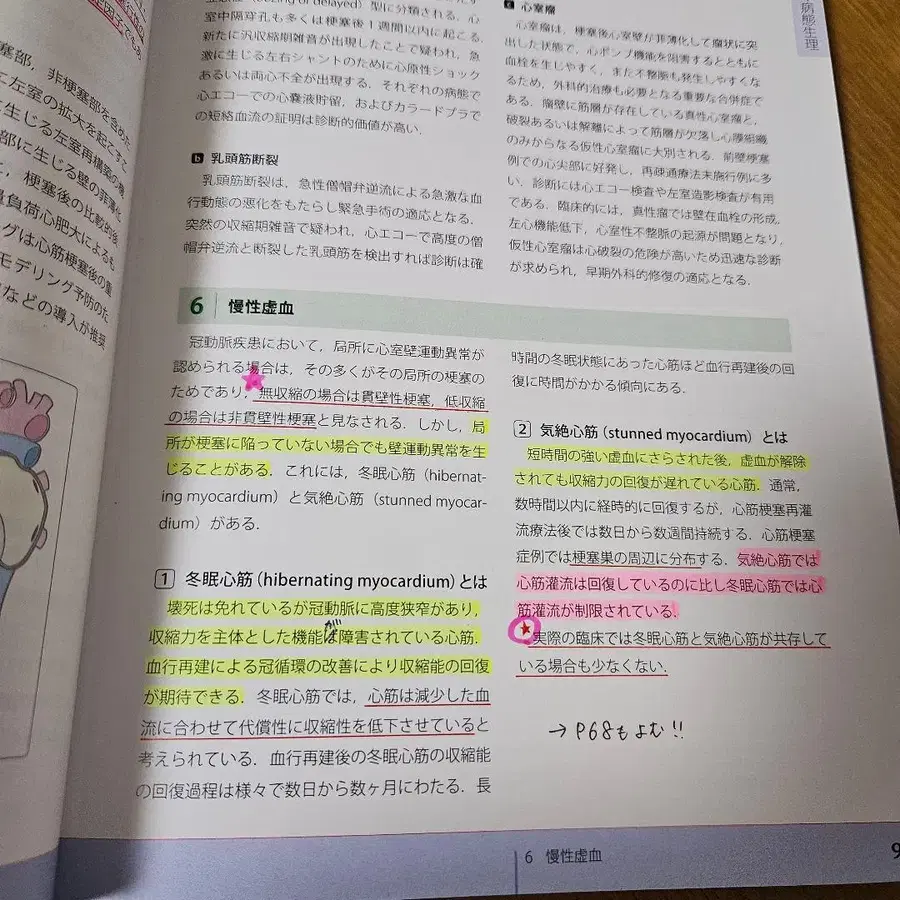 塞部，非梗塞部を含めた
量負荷心肥大によるも
グは心筋梗塞後の重
モデリング予防のた
などの導入が推奨
型に分類される．心
室中隔穿孔も多くは梗塞後1週間以内に起こる．
新たに汎収縮期雑音が出現したことで疑われ，急
激に生じる左右シャントのために心原性ショック
あるいは両心不全が出現する．それぞれの病態で
心エコーでの心嚢液貯留，およびカラードプラで
の短絡血流の証明は診断的価値が高い．
b 乳頭筋断裂
乳頭筋断裂は，急性僧帽弁逆流による急激な血
行動態の悪化をもたらし緊急手術の適応となる．
突然の収縮期雑音で疑われ，心エコーで高度の僧
帽弁逆流と断裂した乳頭筋を検出すれば診断は確
c 心室瘤
心室瘤は，梗塞後心室壁が菲薄化して瘤状に突
出した状態で，心ポンプ機能を阻害するとともに
血栓を生じやすく，また不整脈も発生しやすくな
るため，外科的治療も必要となる重要な合併症で
ある．瘤壁に筋層が存在している真性心室瘤と，
破裂あるいは解離によって筋層が欠落し心膜組織
のみからなる仮性心室瘤に大別される．前壁梗塞
例での心尖部に好発し，再疎通療法未施行例に多
い．診断には心エコー検査や左室造影検査が有用
である．臨床的には，真性瘤では壁在血栓の形成，
左心機能低下，心室性不整脈の起源が問題となり，
仮性心室瘤は心破裂の危険が高いため迅速な診断
が求められ，早期外科的修復の適応となる．
病態生理
6 慢性虚血
冠動脈疾患において，局所に心室壁運動異常が
認められる場合は，その多くがその局所の梗塞の
ためであり，無収縮の場合は貫壁性梗塞，低収縮
の場合は非貫壁性梗塞と見なされる．しかし，局
所が梗塞に陥っていない場合でも壁運動異常を生
じることがある．これには，冬眠心筋（hibernat-
ing myocardium）と気絶心筋（stunned myocar-
dium）がある．
1 冬眠心筋（hibernating myocardium）とは
壊死は免れているが冠動脈に高度狭窄があり，
収縮力を主体とした機能は障害されている心筋．
が
血行再建による冠循環の改善により収縮能の回復
が期待できる．冬眠心筋では，心筋は減少した血
流に合わせて代償性に収縮性を低下させていると
考えられている．血行再建後の冬眠心筋の収縮能
の回復過程は様々で数日から数ヶ月にわたる．長
時間の冬眠状態にあった心筋ほど血行再建後の回
復に時間がかかる傾向にある．
2 気絶心筋（stunned myocardium）とは
短時間の強い虚血にさらされた後，虚血が解除
されても収縮力の回復が遅れている心筋．通常，
数時間以内に経時的に回復するが，心筋梗塞再灌
流療法後では数日から数週間持続する．心筋梗塞
症例では梗塞巣の周辺に分布する．気絶心筋では
心筋灌流は回復しているのに比し冬眠心筋では心
筋灌流が制限されている．
実際の臨床では冬眠心筋と気絶心筋が共存して
いる場合も少なくない．
→ P68もよむ!!
6 慢性虚血